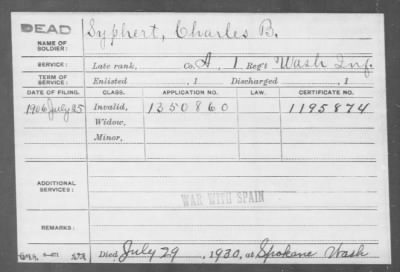 DEAD
NAME OF SOLDIER: Syphert, Charles B.
SERVICE: Late rank, Co. A, 1 Reg't Wash Inf.
TERM OF SERVICE: Enlisted , 1 Discharged , 1
DATE OF FILING. CLASS. APPLICATION NO. LAW. CERTIFICATE NO.
1906 July 25 Invalid, 1350860 1195874
Widow,
Minor,
ADDITIONAL SERVICES:
WAR WITH SPAIN
REMARKS:
Died July 29, 1930, at Spokane Wash